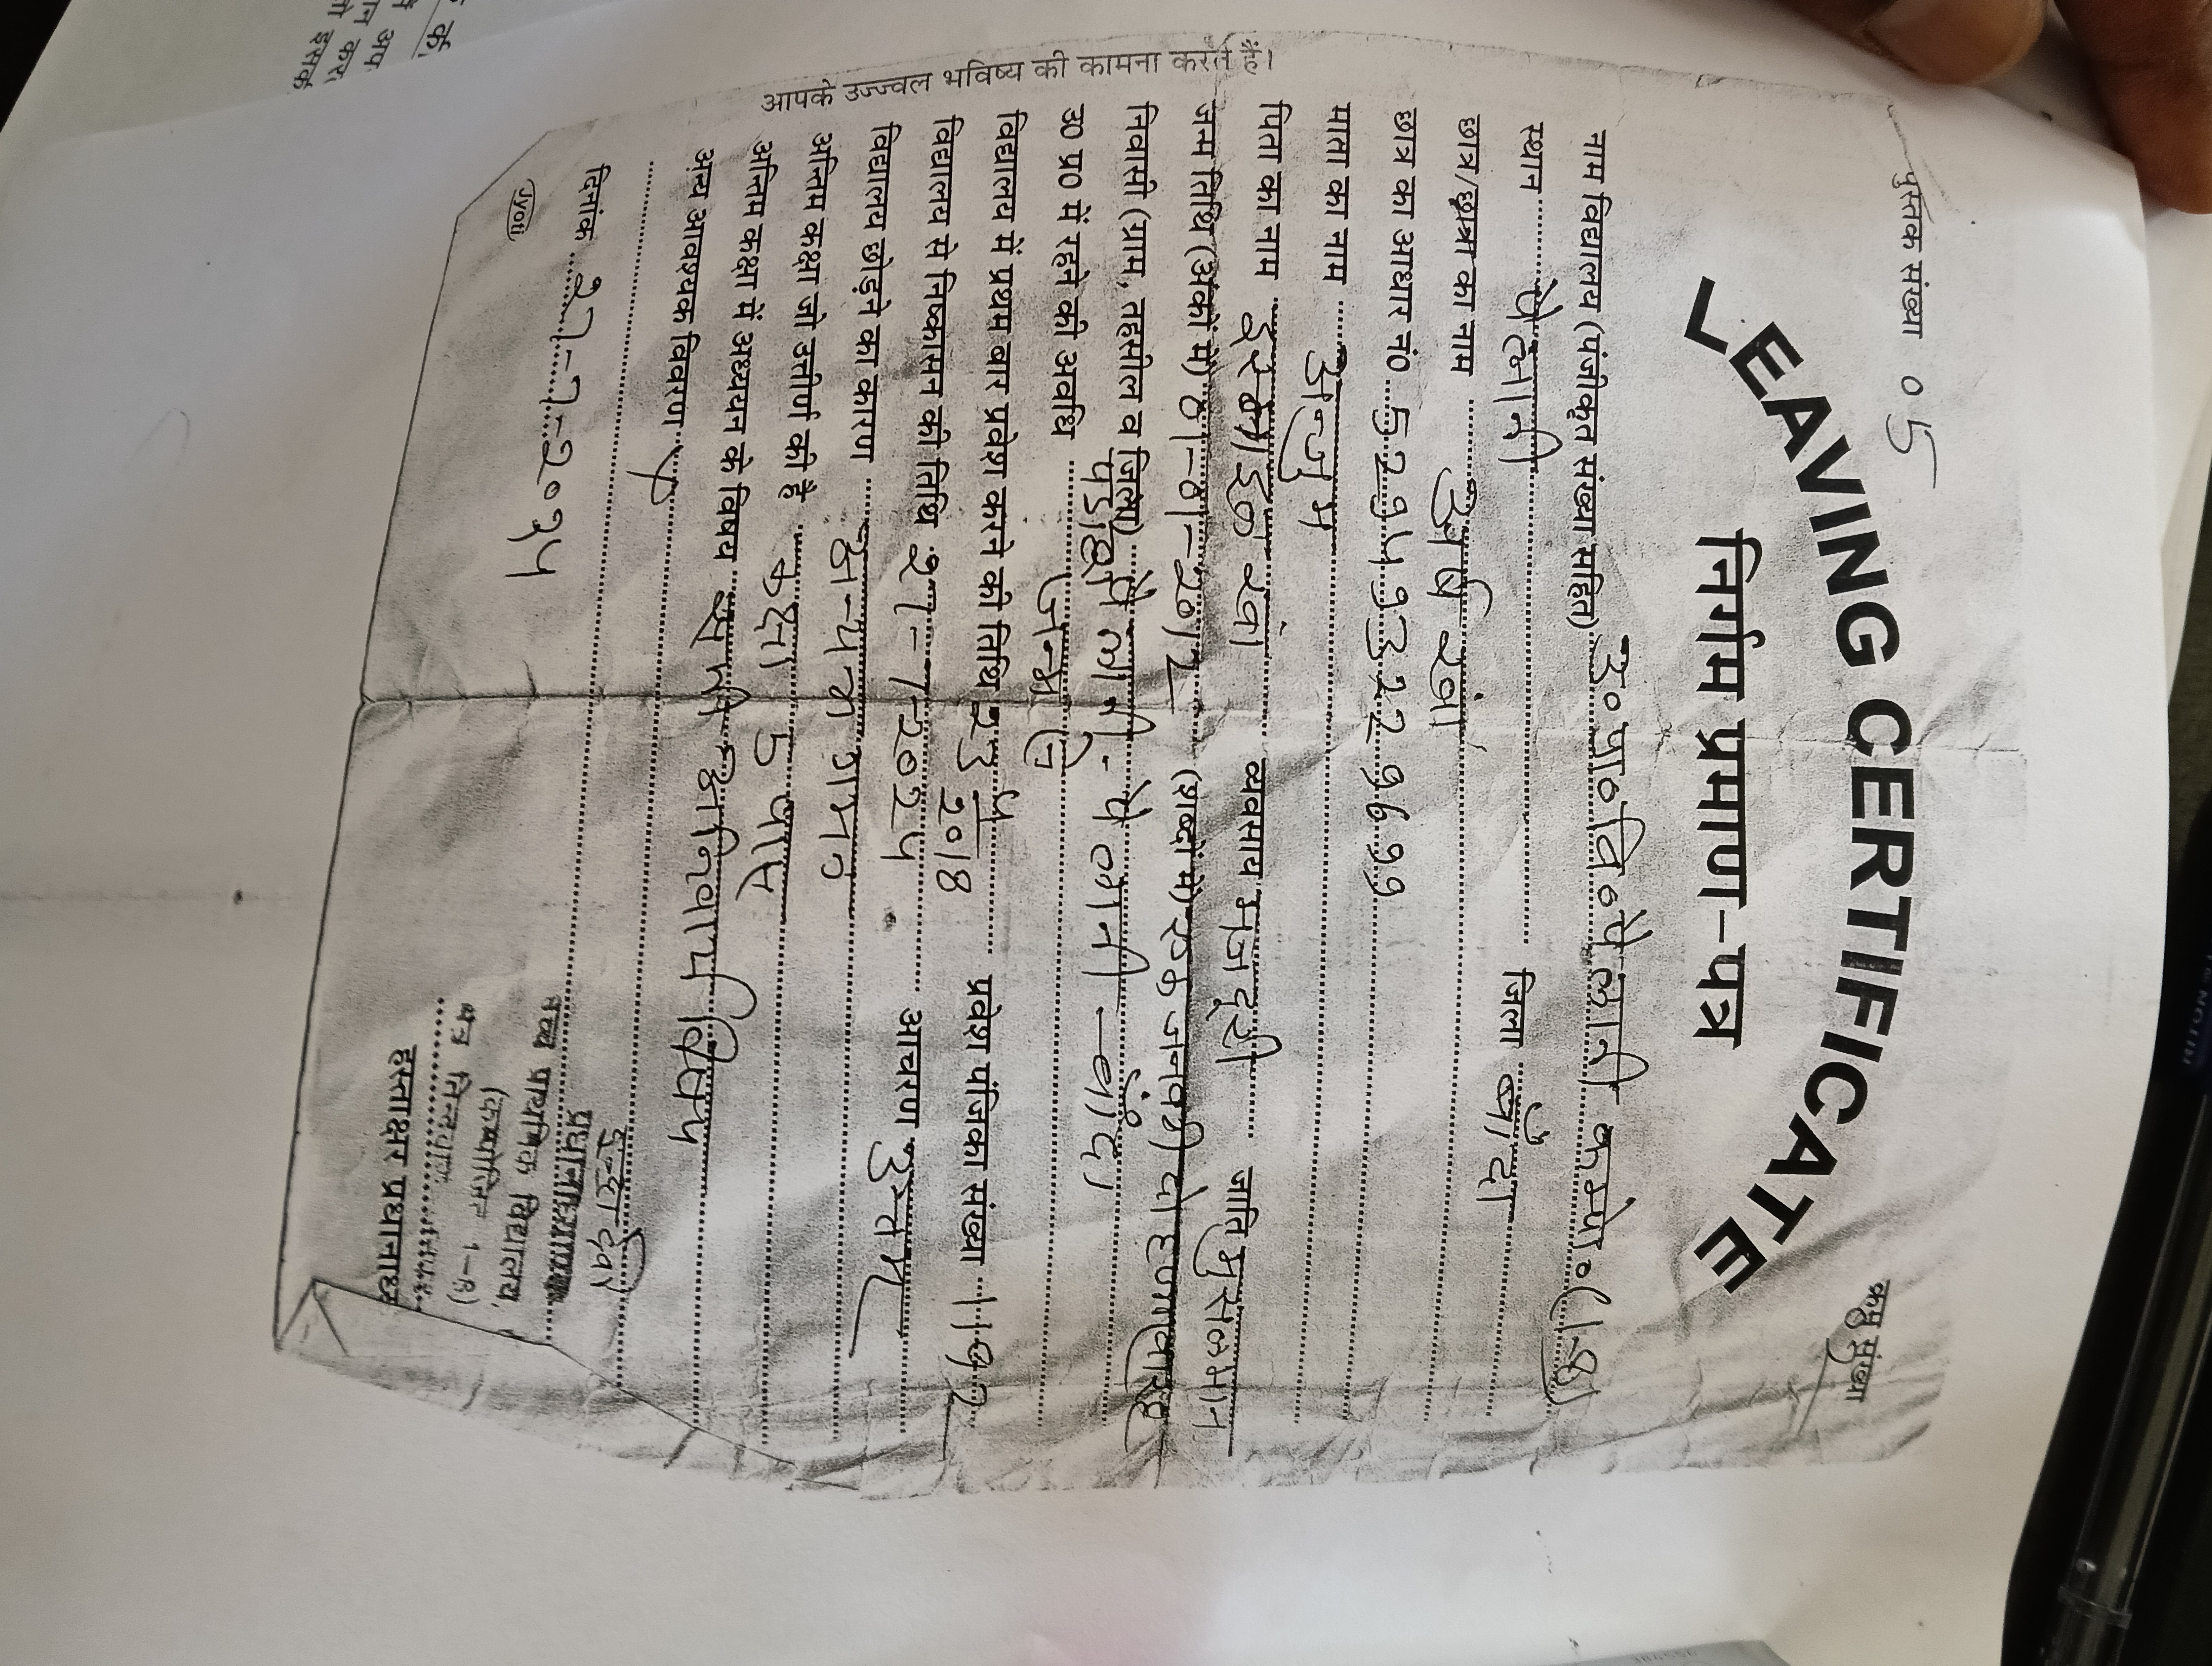 पुस्तक संख्या 05
क्रम संख्या
LEAVING CERTIFICATE
निर्गम प्रमाण-पत्र
नाम विद्यालय (पंजीकृत संख्या सहित) उ० प्रा० वि० पैलानी कम्पो० (1-8)
स्थान पैलानी जिला बाँदा
छात्र/छात्रा का नाम अर्श खाँ
छात्र का आधार नं०
माता का नाम अन्जुम
पिता का नाम खाँ व्यवसाय मजदूरी जाति मुसलमान
जन्म तिथि (अंकों में) 01-01-2012 (शब्दों में) एक जनवरी दो हजार बारह
निवासी (ग्राम, तहसील व जिला) पैलानी - पैलानी - बाँदा
उ० प्र० में रहने की अवधि जन्म से
विद्यालय में प्रथम बार प्रवेश करने की तिथि प्रवेश पंजिका संख्या
विद्यालय से निष्कासन की तिथि 27-7-2024 आचरण उत्तम
विद्यालय छोड़ने का कारण अन्यत्र गमन
अन्तिम कक्षा जो उत्तीर्ण की है कक्षा 5 पास
अन्तिम कक्षा में अध्ययन के विषय सभी अनिवार्य विषय
अन्य आवश्यक विवरण
दिनांक 27-7-2024
प्रधानाध्यापक
उच्च प्राथमिक विद्यालय,
(कम्पोजिट 1-8)
हस्ताक्षर प्रधानाध्या
Jyoti
आपके उज्ज्वल भविष्य की कामना करते हैं।